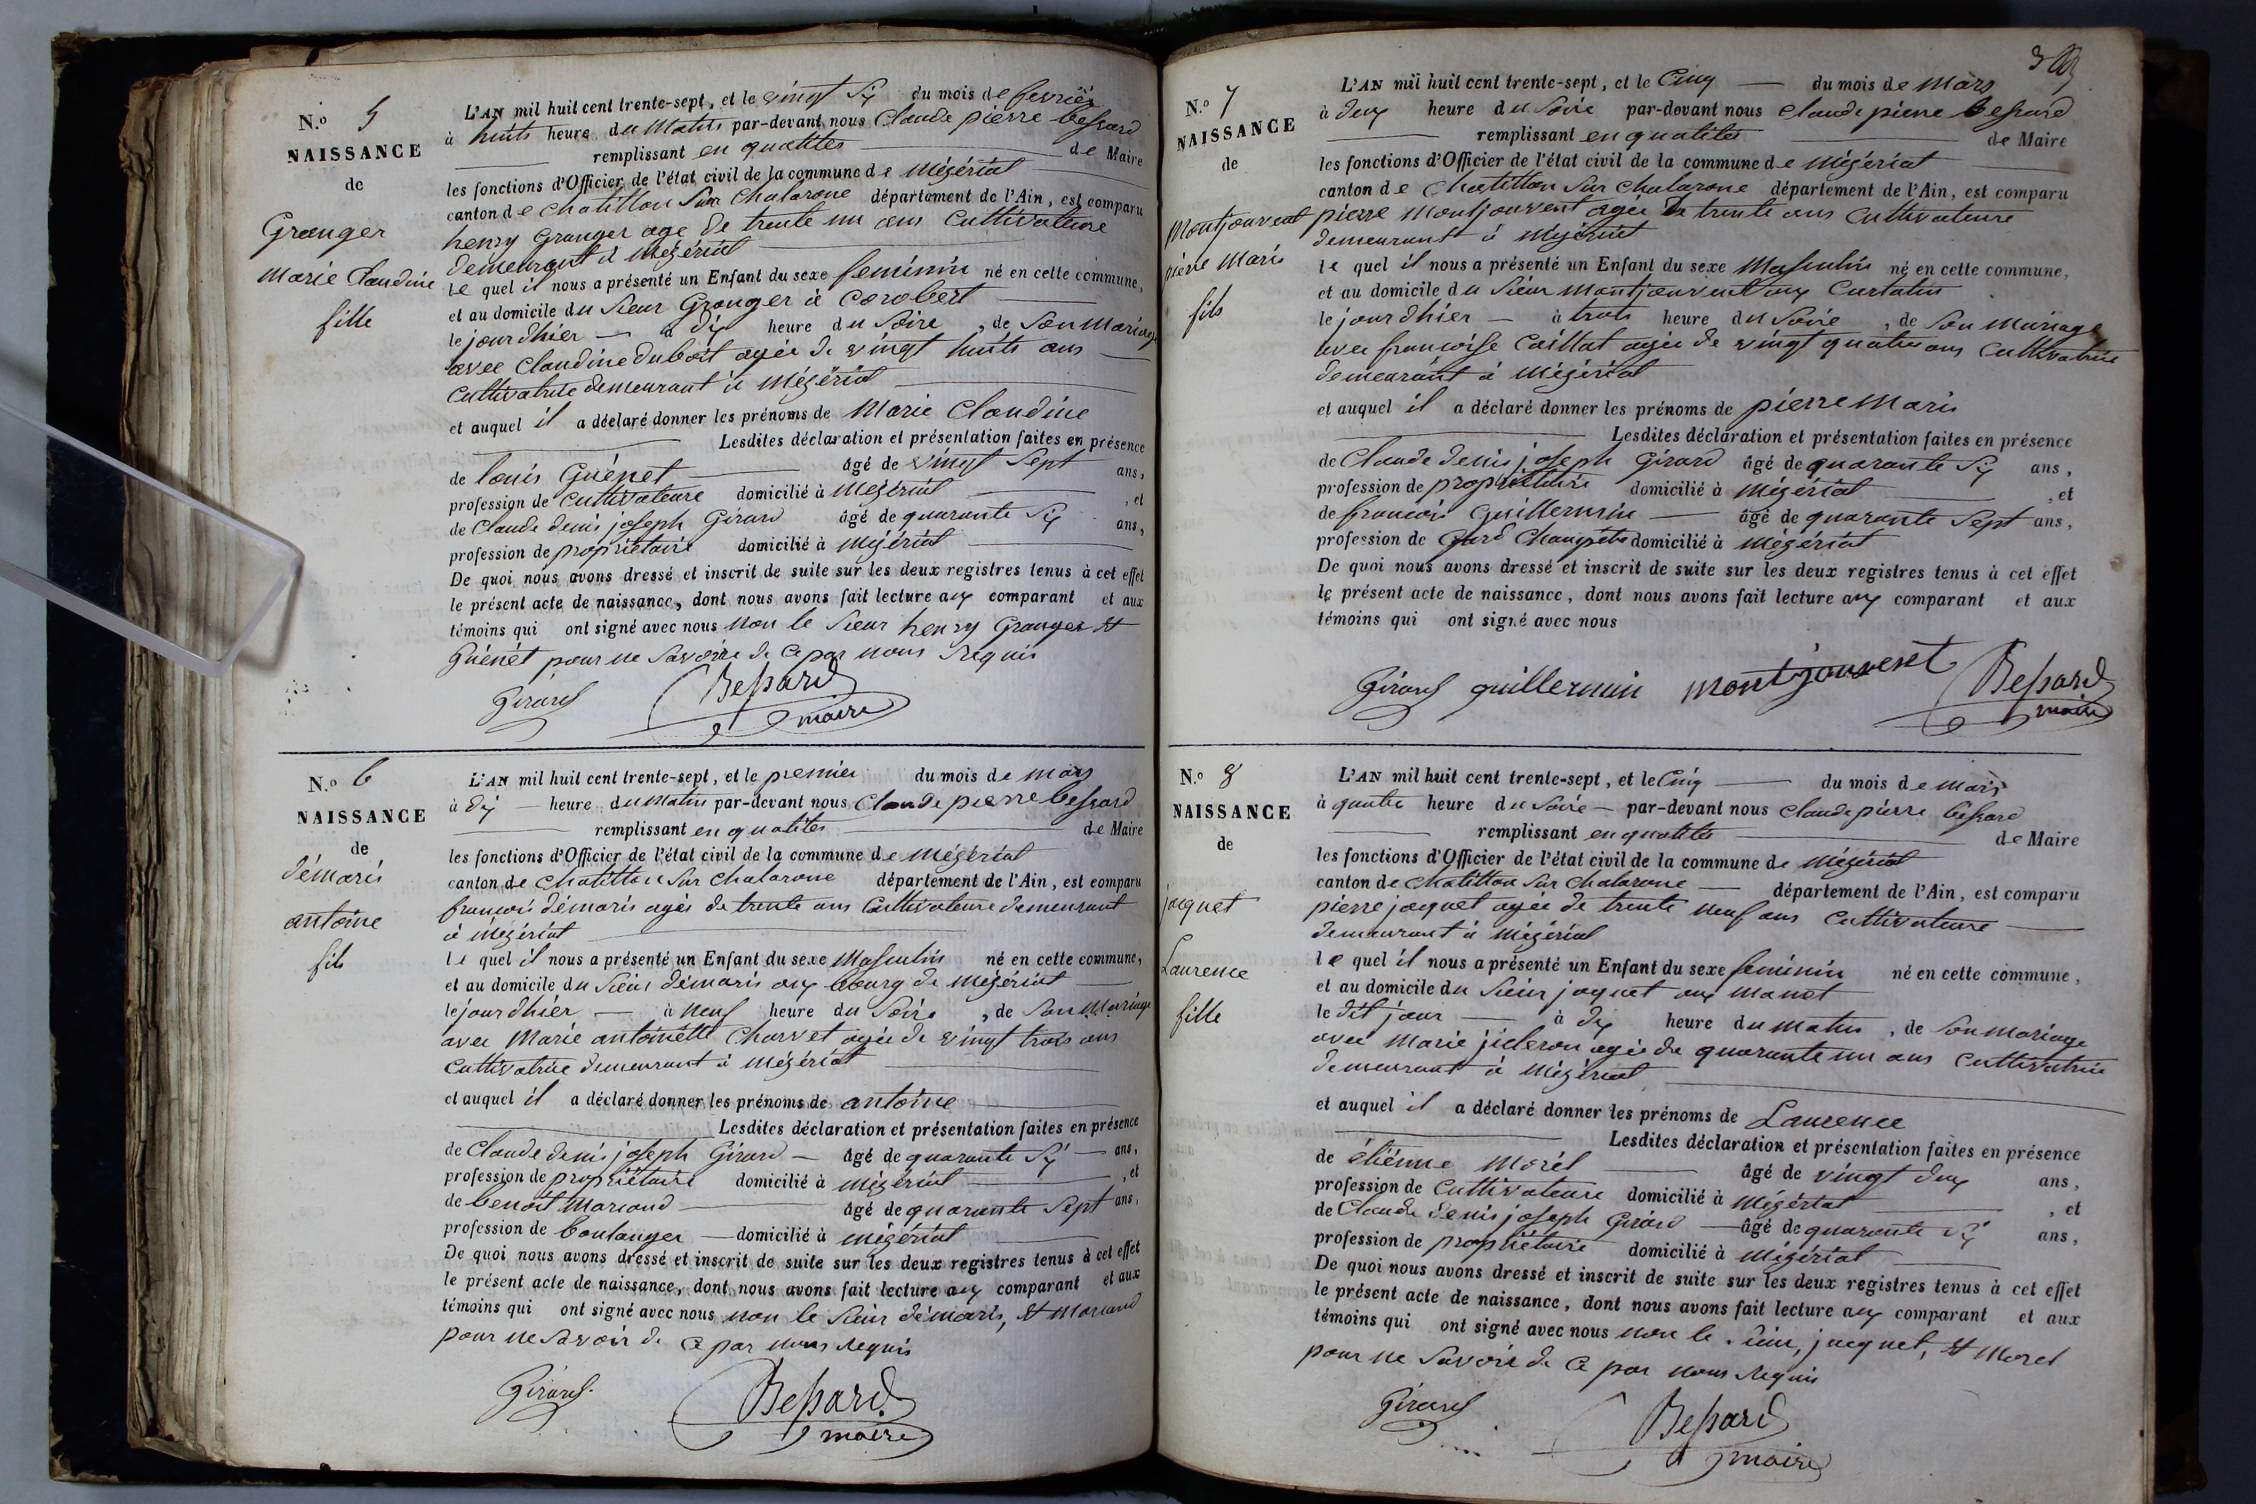 N.o 5
NAISSANCE
de
Granger
Marie Claudine
fille
L'AN mil huit cent trente-sept, et le vingt Six du mois de fevrier
à huits heure du Matin par-devant nous Claude pierre bessard
remplissant en qualites de Maire
les fonctions d'Officier de l'état civil de la commune de Mézériat
canton de chatillon Sur Chalarone département de l'Ain, est comparu
henry Granger age de trente un ans Cultivateure
demeurant à Mézériat
le quel il nous a présenté un Enfant du sexe feminin né en cette commune,
et au domicile du Sieur Granger à Corobert
le jour dhier à dix heure du Soire, de Son Mariage
avec Claudine dubost agée de vingt huits ans
Cultivatrice demeurant à Mézériat
et auquel il a déclaré donner les prénoms de Marie Claudine
Lesdites déclaration et présentation faites en présence
de louis Guénet âgé de vingt Sept ans,
profession de Cultivateure domicilié à Mézériat, et
de Claude denis joseph Girard âgé de quarante Six ans,
profession de propriétaire domicilié à Mézériat
De quoi nous avons dressé et inscrit de suite sur les deux registres tenus à cet effet
le présent acte de naissance, dont nous avons fait lecture aux comparant et aux
témoins qui ont signé avec nous non le Sieur henry Granger et
Guénet pour ne Savoire de Ce par nous Requis
Girard Bessard maire
N.o 6
NAISSANCE
de
démaris
antoine
fils
L'AN mil huit cent trente-sept, et le premier du mois de mars
à dix heure du Matin par-devant nous Claude pierre bessard
remplissant en qualites de Maire
les fonctions d'Officier de l'état civil de la commune de Mézériat
canton de Chatillon Sur Chalarone département de l'Ain, est comparu
françois démaris agés de trente ans Cultivateure demeurant
à Mézériat
le quel il nous a présenté un Enfant du sexe Masculin né en cette commune,
et au domicile du Sieur démaris aux bourg de Mézériat
le jour dhier à neuf heure du Soire, de Son Mariage
avec Marie antoinette Charvet agée de vingt trois ans
Cultivatrice demeurant à Mézériat
et auquel il a déclaré donner les prénoms de antoine
Lesdites déclaration et présentation faites en présence
de Claude denis joseph Girard âgé de quarante Six ans,
profession de propriétaire domicilié à Mézériat, et
de benoit Morand âgé de quarante Sept ans,
profession de boulanger domicilié à Mézériat
De quoi nous avons dressé et inscrit de suite sur les deux registres tenus à cet effet
le présent acte de naissance, dont nous avons fait lecture aux comparant et aux
témoins qui ont signé avec nous non le Sieur démaris, et Morand
pour ne Savoir de Ce par nous Requis
Girard Bessard maire
N.o 7
NAISSANCE
de
Montjouvent
pierre Marie
fils
L'AN mil huit cent trente-sept, et le Cinq du mois de Mars
à deux heure du Soire par-devant nous Claude pierre bessard
remplissant en qualites de Maire
les fonctions d'Officier de l'état civil de la commune de Mézériat
canton de Chatillon Sur Chalarone département de l'Ain, est comparu
pierre Montjouvent agée de trente ans Cultivateure
demeurant à Mézériat
le quel il nous a présenté un Enfant du sexe Masculin né en cette commune,
et au domicile du Sieur Montjouvent aux Curtatin
le jour dhier à trois heure du Soire, de Son Mariage
avec françoise Caillat agée de vingt quatre ans Cultivatrice
demeurant à Mézériat
et auquel il a déclaré donner les prénoms de pierre Marie
Lesdites déclaration et présentation faites en présence
de Claude denis joseph Girard âgé de quarante Six ans,
profession de propriétaire domicilié à Mézériat, et
de françois Guillermin âgé de quarante Sept ans,
profession de Gard Champètre domicilié à Mézériat
De quoi nous avons dressé et inscrit de suite sur les deux registres tenus à cet effet
le présent acte de naissance, dont nous avons fait lecture aux comparant et aux
témoins qui ont signé avec nous
Girard guillermin montjouvent Bessard
maire
N.o 8
NAISSANCE
de
jacquet
Laurence
fille
L'AN mil huit cent trente-sept, et le Cinq du mois de Mars
à quatre heure du Soire par-devant nous Claude pierre bessard
remplissant en qualites de Maire
les fonctions d'Officier de l'état civil de la commune de Mézériat
canton de Chatillon Sur Chalarone département de l'Ain, est comparu
pierre jacquet agée de trente neuf ans Cultivateure
demeurant à Mézériat
le quel il nous a présenté un Enfant du sexe feminin né en cette commune,
et au domicile du Sieur jaquet aux Manet
le dit jour à dix heure du Matin, de Son Mariage
avec Marie jicleron agée de quarante un ans Cultivatrice
demeurant à Mézériat
et auquel il a déclaré donner les prénoms de Laurence
Lesdites déclaration et présentation faites en présence
de étiénne Morél âgé de vingt deux ans,
profession de Cultivateure domicilié à Mézériat, et
de Claude denis joseph Girard âgé de quarante Six ans,
profession de propriétaire domicilié à Mézériat
De quoi nous avons dressé et inscrit de suite sur les deux registres tenus à cet effet
le présent acte de naissance, dont nous avons fait lecture aux comparant et aux
témoins qui ont signé avec nous non le Sieur, jacquet, et Morel
pour ne Savoir de Ce par nous Requis
Girard Bessard
maire